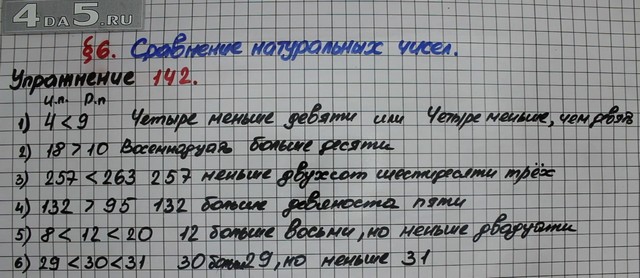 4DA5.RU
§6. Сравнение натуральных чисел.
Упражнение 142.
И.п. Р.п
1) 4 < 9 Четыре меньше девяти или Четыре меньше, чем девять
2) 18 > 10 Восемнадцать больше десяти
3) 257 < 263 257 меньше двухсот шестидесяти трёх
4) 132 > 95 132 больше девяноста пяти
5) 8 < 12 < 20 12 больше восьми, но меньше двадцати
6) 29 < 30 < 31 30 больше 29, но меньше 31